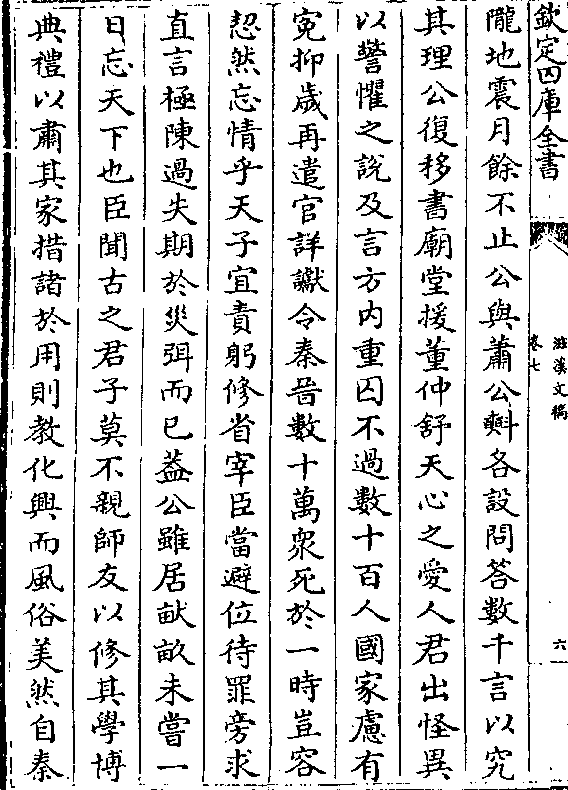 欽定四庫全書
滋溪文稿
卷七
六
隴地震月餘不止公與蕭公㪺各設問答數千言以究
其理公復移書廟堂援董仲舒天心之愛人君出怪異
以警懼之說及言方內重囚不過數十百人國家慮有
寃抑歲再遣官詳讞今秦晉數十萬衆死於一時豈容
恝然忘情乎天子宜責躬修省宰臣當避位待罪旁求
直言極陳過失期於災弭而已葢公雖居畎畝未嘗一
日忘天下也臣聞古之君子莫不親師友以修其學博
典禮以肅其家措諸於用則教化興而風俗美然自秦